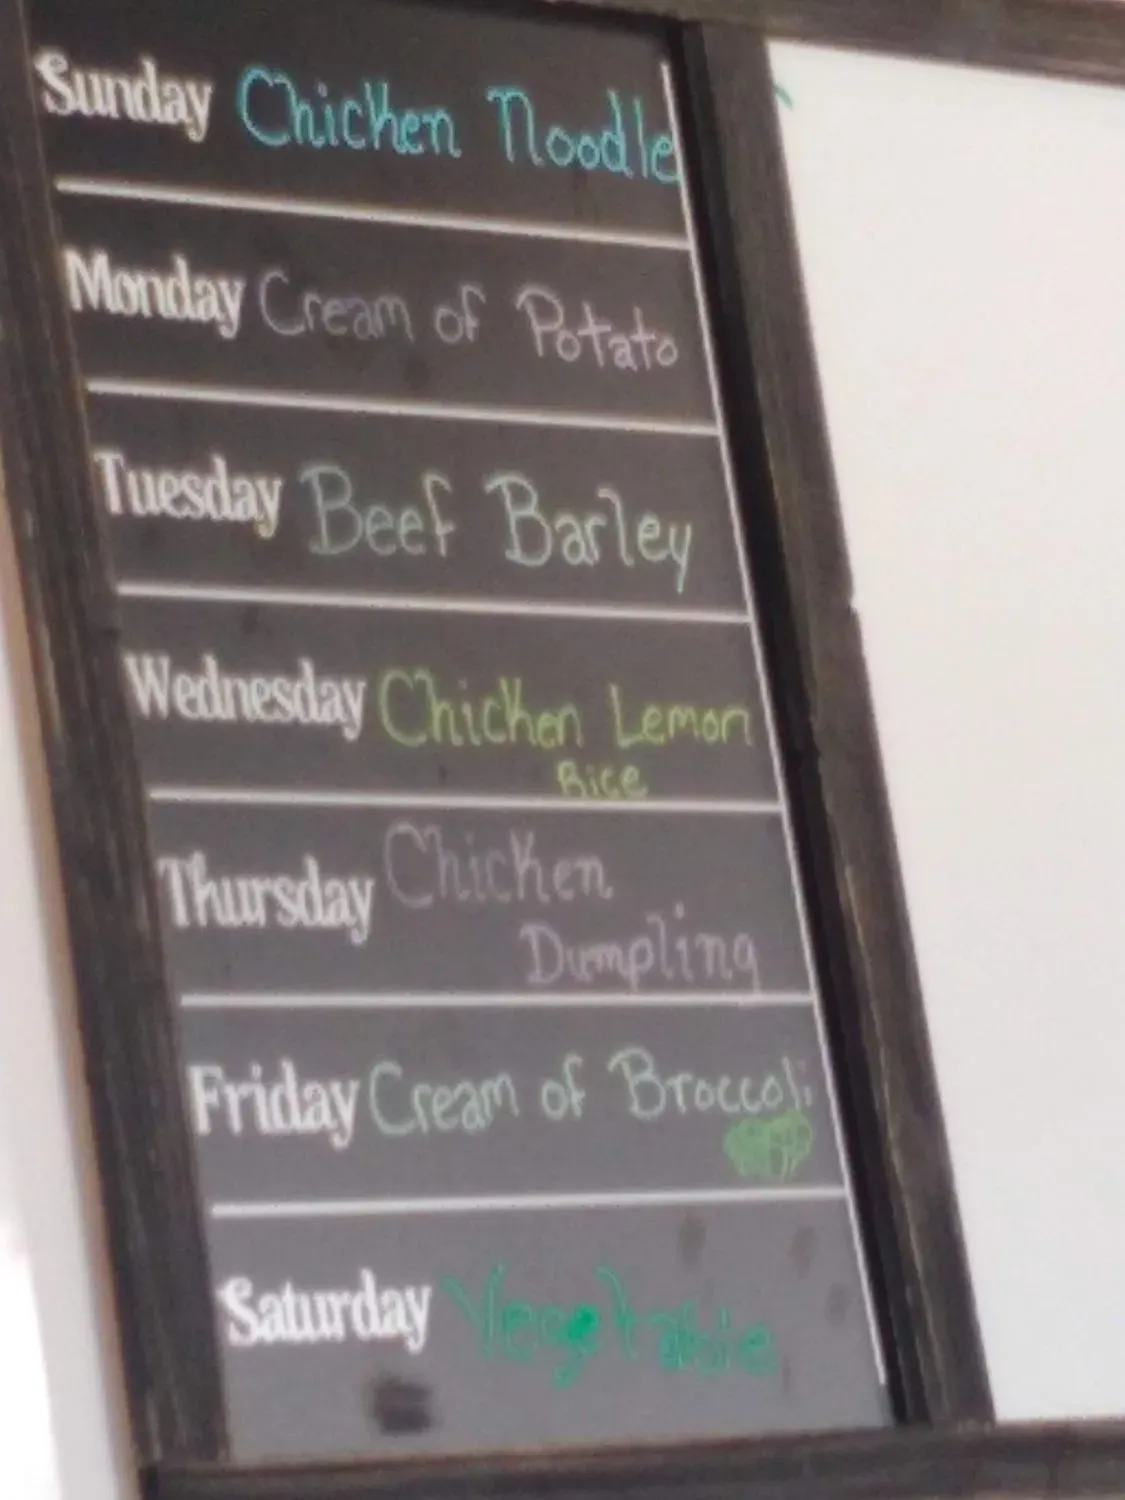 Sunday Chicken Noodle
Monday Cream of Potato
Tuesday Beef Barley
Wednesday Chicken Lemon
Rice
Thursday Chicken
Dumpling
Friday Cream of Broccoli
Saturday Vegetable